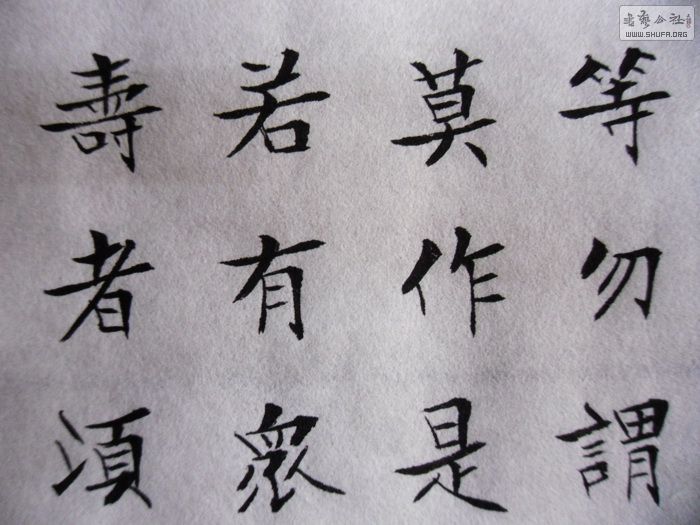 等勿謂
莫作是
若有眾
壽者湏
書藝公社
WWW.SHUFA.ORG